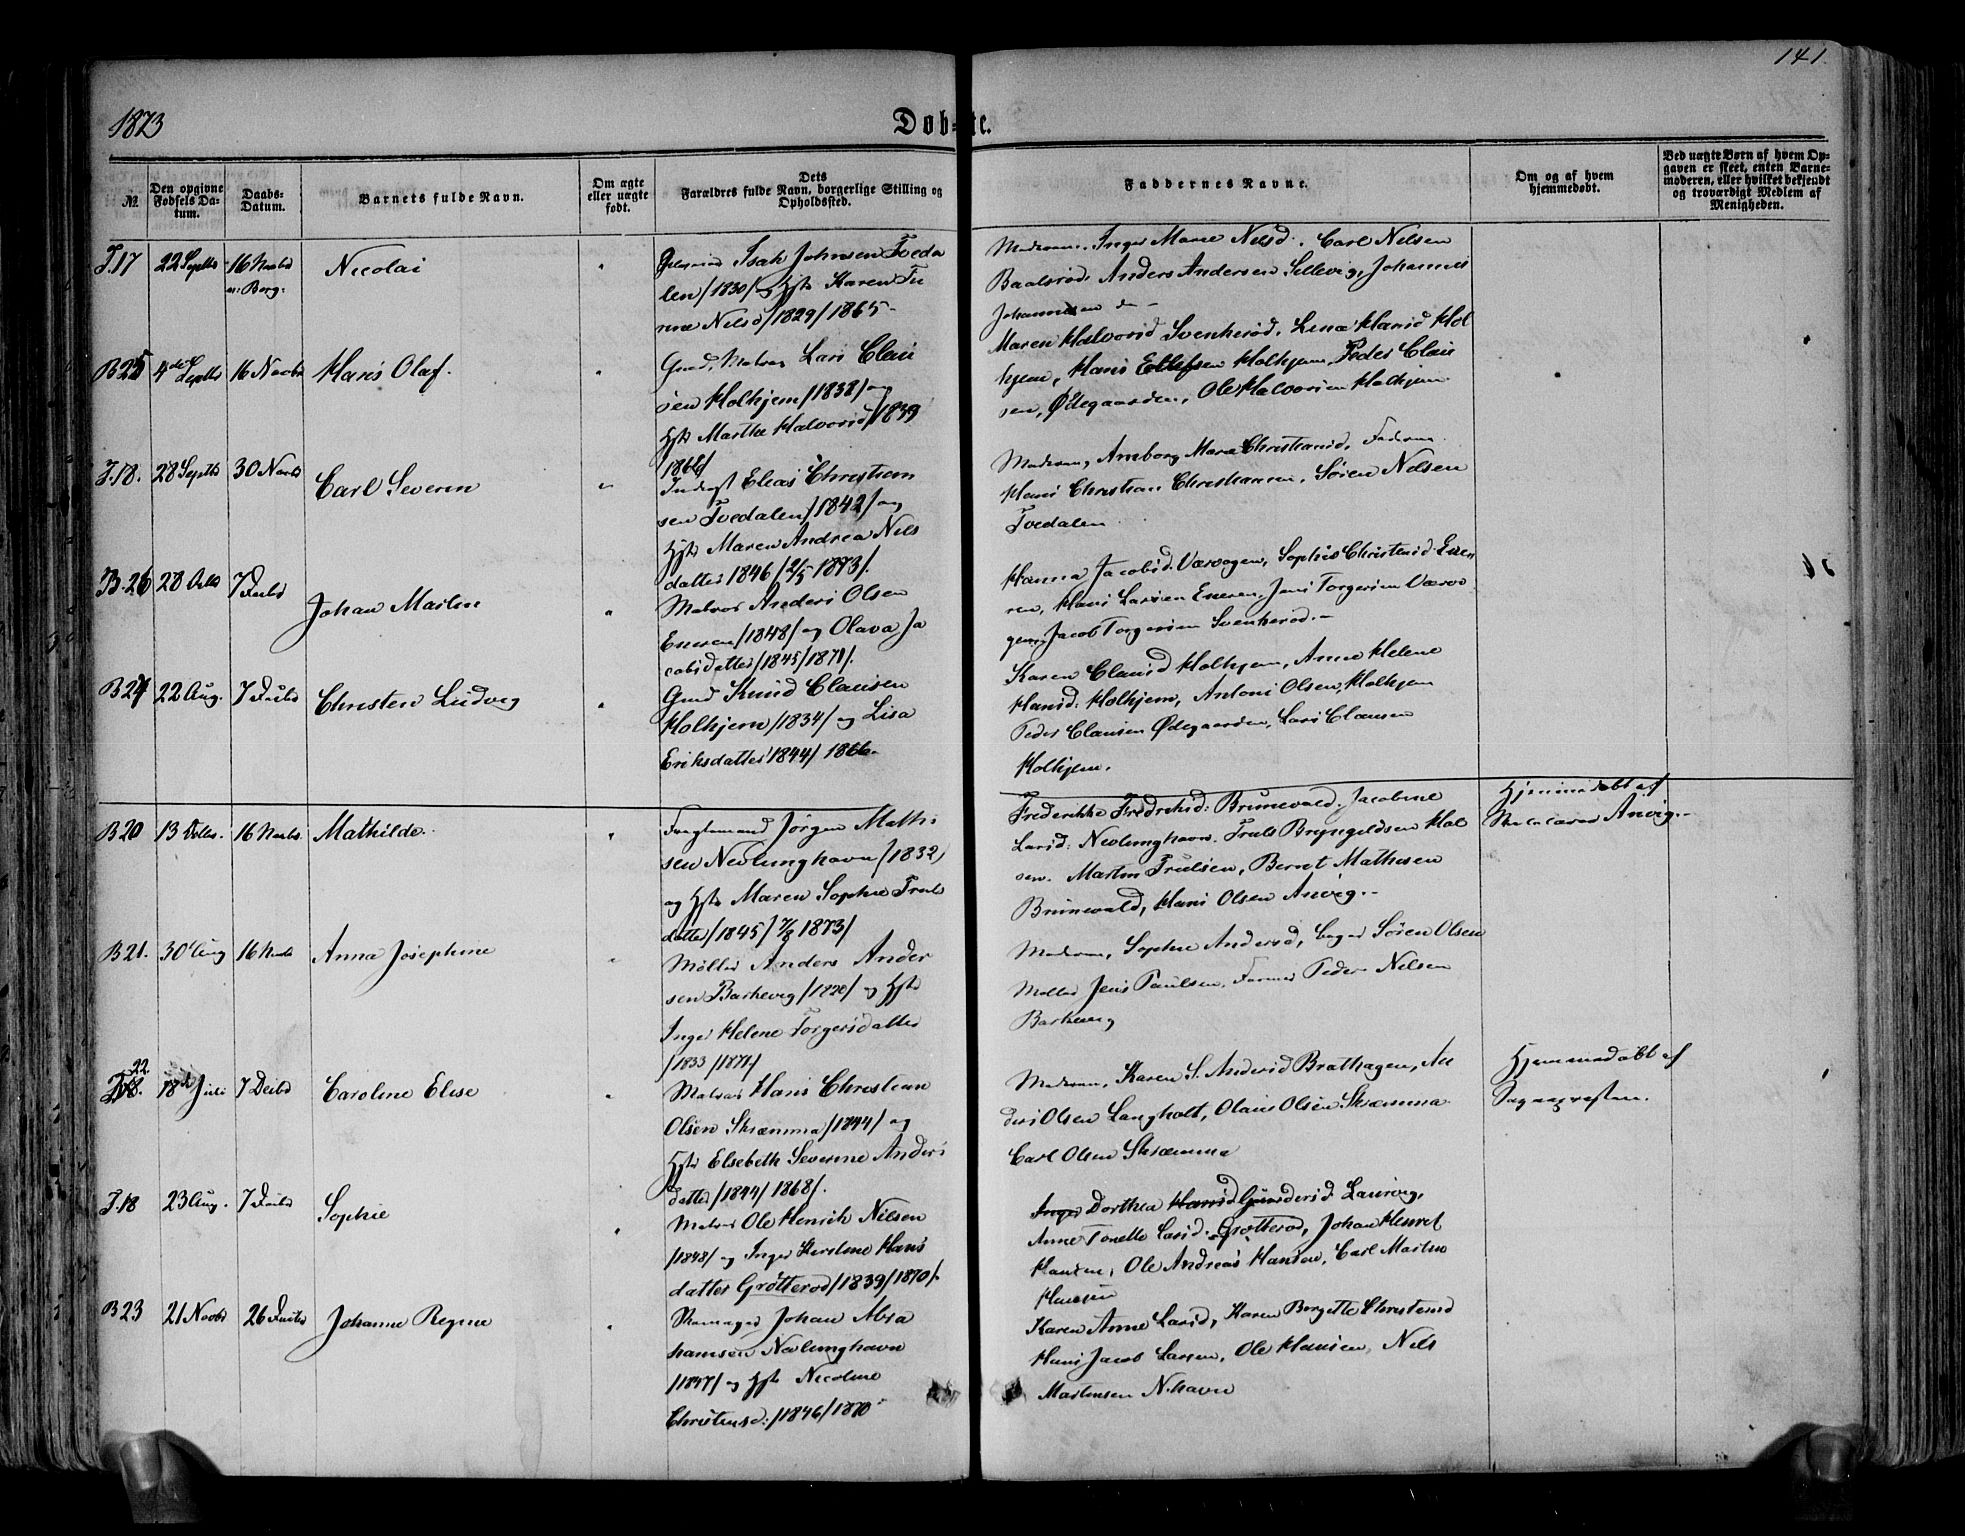 141.
1873
Døb-te.
№
Den opgivne Fødsels Datum.
Daabs-Datum.
Barnets fulde Navn.
Om ægte eller uægte født.
Dets Forældres fulde Navn, borgerlige Stilling og Opholdssted.
Faddernes Navne.
Om og af hvem hjemmedøbt.
Ved uægte Børn af hvem Opgaven er skeet, enten Barnemoderen, eller hvilket bekjendt og troværdigt Medlem af Menigheden.
17 22 Septbr 16 Novbr Nicolai
Isak Johnsen Tveda
len /1830/ og Hst Karen Tri
ne Nelsd /1829/ 1865
Moderen, Inger Marie Nelsd. Carl Nelsen
Baalsrød, Anders Andersen Sillevig, Johannes
Johannesen
B25 4de Septbr 16 Novbr Hans Olaf.
Gmd, Matros Lars Clau
sen Holhjem /1838/ og
Hst Marthe Halvorsd /1839
Maren Halvorsd Svenkerød, Lina Hansd Hol
hjem, Hans Ellefsen Holhjem, Peder Clau
sen, Ødegaarden, Ole Halvorsen Holhjem
18. 28 Septbr 30 Novbr Carl Severin
Elias Christian
sen Tvedalen /1842/ og
Hst Maren Andrea Nils
datter 1846 /2/5 1873/.
Moderen, Amborg Marie Christiansd,
Hans Christian Christiansen, Søren Nelsen
Tvedalen
B.26 28 Octb 7 Decbr Johan Martin
Matros Anders Olsen
/1848/ og Olava Ja
cobsdatter /1845/1871/.
Hanna Jacobsd. Værvagen, Sophie Christensd
Hans Larsen Jens Torgersen Værva
gen, Jacob Torgersen Svenkerød.
B24 22 Aug. 7 Decbr Christen Ludvig
Gmd Knud Clausen
Holhjem /1834/ og Lisa
Eriksdatter 1844/ 1866
Karen Clausd Holhjem, Anne Helene
Hansd. Holhjem, Anton Olsen, Holhjem
Peder Clausen Ødegaarden, Lars Clausen
Holhjem.
B20 13 16 Novbr. Mathilde.
Jørgen Mathi
sen Nevlunghavn /1832/
og Hst Maren Sophie Truls
datter /1845/ 7/8 1873/
Frederikke Fredriksd. Brunevald. Jacobine
Larsd. Nevlunghavn. Truls Bryngeldsen Hal
sen. Martin Trulsen, Bernt Mathisen
Brunevald, Hans Olsen Anvig.
Hjemmedøbt af
Anvig.
B21. 30 Aug 16 Novbr Anna Josephine
Møller Anders Ander
sen Barkevig /1828/ og Hst
Inger Helene Torgersdatter
/1833 /1871/
Moderen, Sophie Andersd, Søren Olsen
Møller Jens Paulsen, Peder Nelsen
Barkevig
22. 18de Juli 7 Decbr Caroline Elise
Matros Hans Christian
Olsen Skræmma /1844/ og
Hst Elsebeth Severine Anders
datter /1844/ 1868/.
Moderen, Karen S. Andersd Brathagen, An
ders Olsen Langholt, Olaus Olsen Skræmma
Carl Olsen Skræmma
Hjemmedøbt af
18 23 Aug. 7 Decbr Sophie
Matros Ole Henrik Nilsen
/1848/ og Inger Kirstine Hans
datter Grøtterød /1839/1870/.
Inger Dorthea Hansd Laurvig,
Anne Tonette Larsd. Grøtterød, Johan Henrik
Hansen, Ole Andreas Hansen, Carl Martin
Hansen
B23 21 Novbr 26 Decbr Johanne Regine
Skomager Johan Abra
hamsen Nevlunghavn
/1847/ og Hst Nicoline
Christensd: /1846/1870
Karen Anne Larsd, Karen Bergette Christensd
Hans Jacob Larsen, Ole Hansen, Nils
Martinsen N.havn